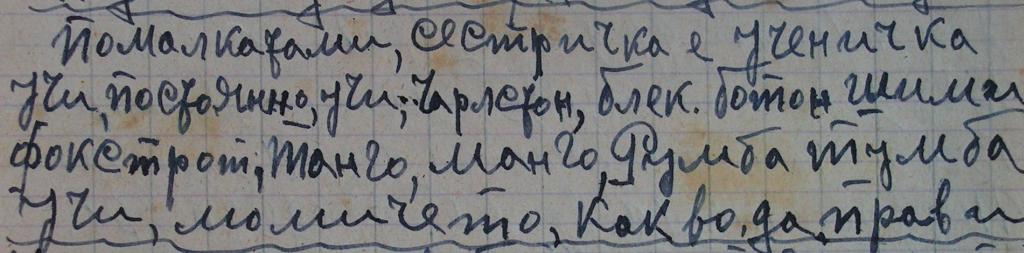 Помалката ми, сестричка е ученичка
Учи, постоянно, учи; Чарлстон, блек. ботон шими
фокстрот, танго, манго, Румба тумба
Учи, момичето, какво. да прави